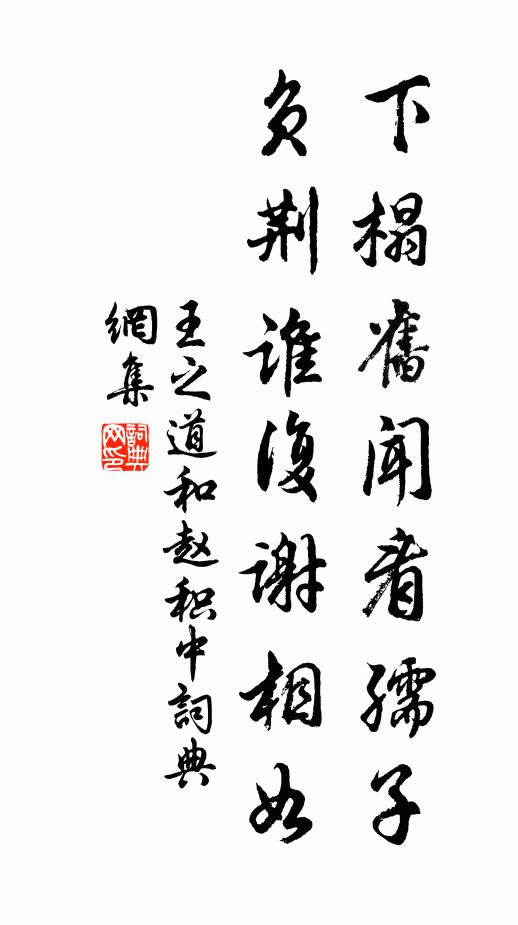 下榻舊闻看孺子
负荆谁復谢相如
王之道和赵积中詞典
網集
詞典网印